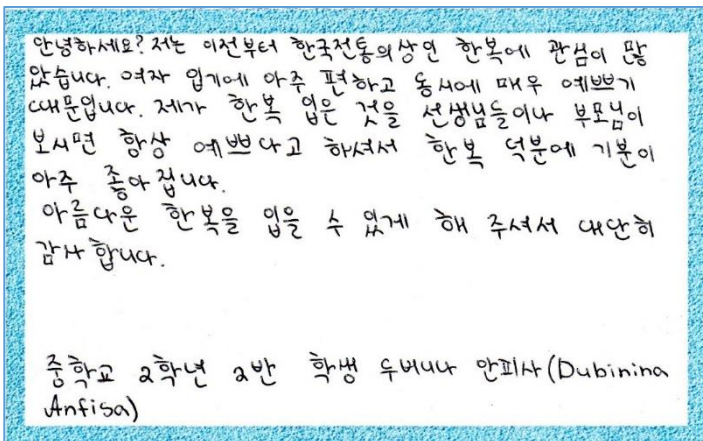 안녕하세요? 저는 이전부터 한국전통의상인 한복에 관심이 많
았습니다. 여자 입기에 아주 편하고 동시에 매우 예쁘기
때문입니다. 제가 한복 입은 것을 선생님들이나 부모님이
보시면 항상 예쁘다고 하셔서 한복 덕분에 기분이
아주 좋아집니다.
아름다운 한복을 입을 수 있게 해 주셔서 대단히
감사합니다.
중학교 2학년 2반 학생 두비니나 안피사(Dubinina
Anfisa)